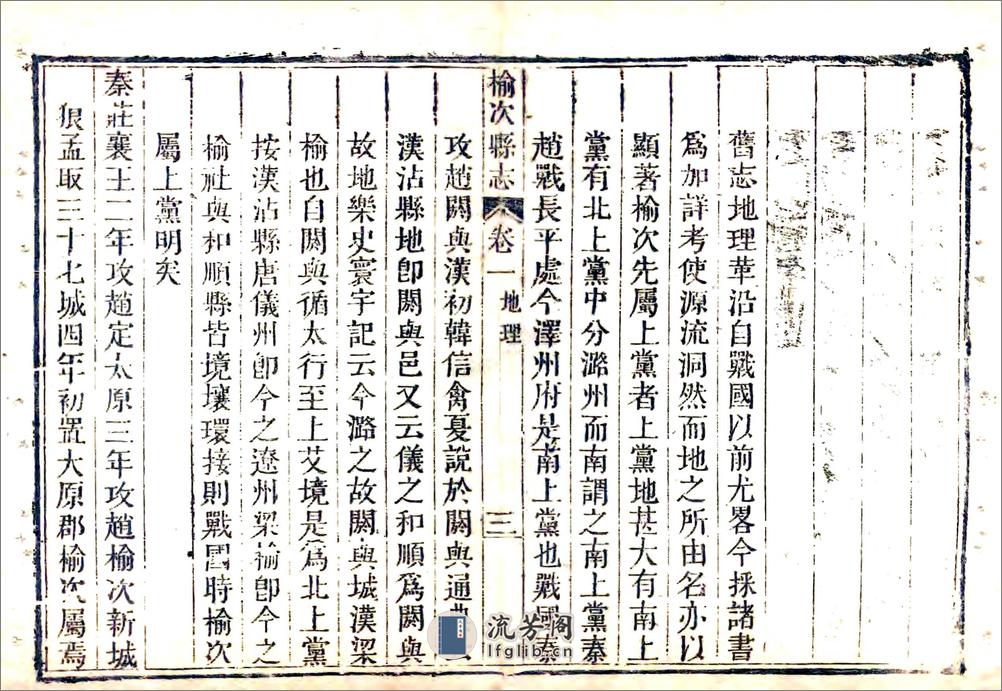 舊志地理革沿自戰國以前尤畧今採諸書
爲加詳考使源流洞然而地之所由名亦以
顯著榆次先屬上黨者上黨地甚大有南上
黨有北上黨中分潞州而南謂之南上黨秦
趙戰長平處今澤州府是南上黨也戰國秦
榆次縣志 卷一 地理 三
攻趙閼與漢初韓信禽夏說於閼與通典
漢沾縣地卽閼與邑又云儀之和順爲閼與
故地樂史寰宇記云今潞之故閼與城漢梁
榆也自閼與循太行至上艾境是爲北上黨
按漢沾縣唐儀州卽今之遼州梁榆卽今之
榆社與和順縣皆境壤環接則戰國時榆次
屬上黨明矣
秦莊襄王二年攻趙定太原三年攻趙榆次新城
狼孟取三十七城四年初置太原郡榆次屬焉
流芳阁
lfglib.cn